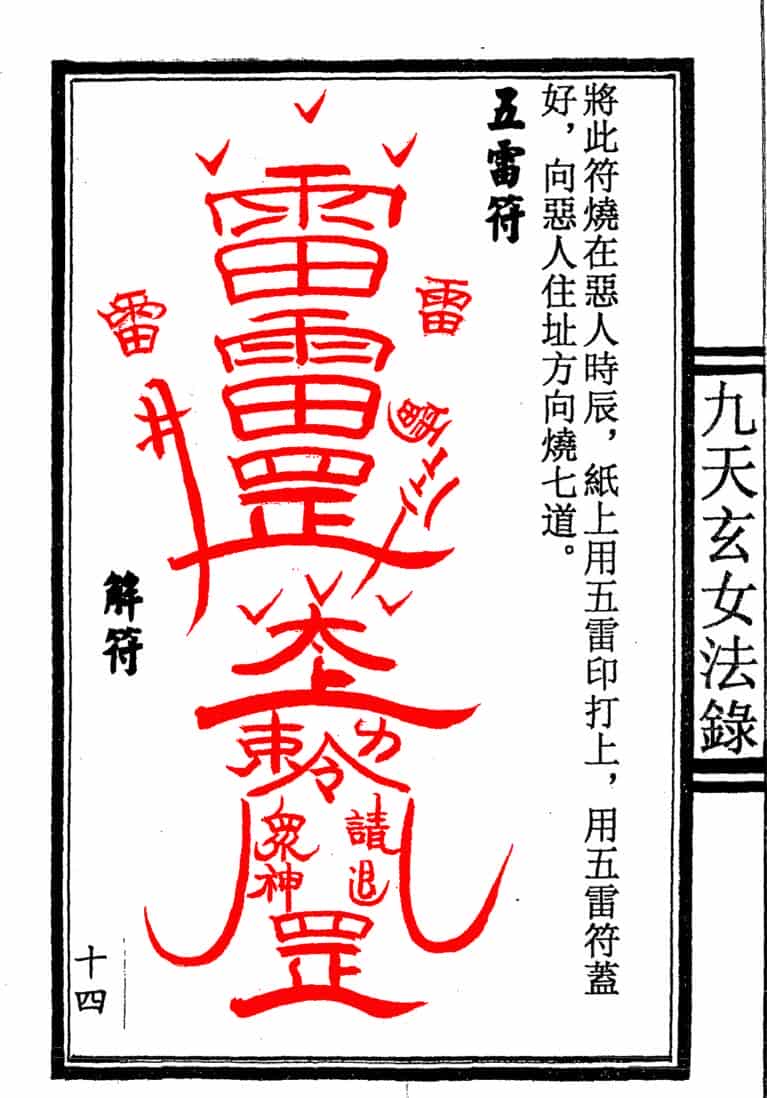 九天玄女法錄
將此符燒在惡人時辰，紙上用五雷印打上，用五雷符蓋
好，向惡人住址方向燒七道。
五雷符
雷
雷
雷
雷
雷
罡
井
太上
敕令
請退
眾神
罡
解符
十四